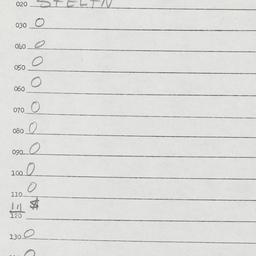 020 STELIN
030 0
040 0
050 0
060 0
070 0
080 0
090 0
100 0
110 0
111 $
120
130 0
0